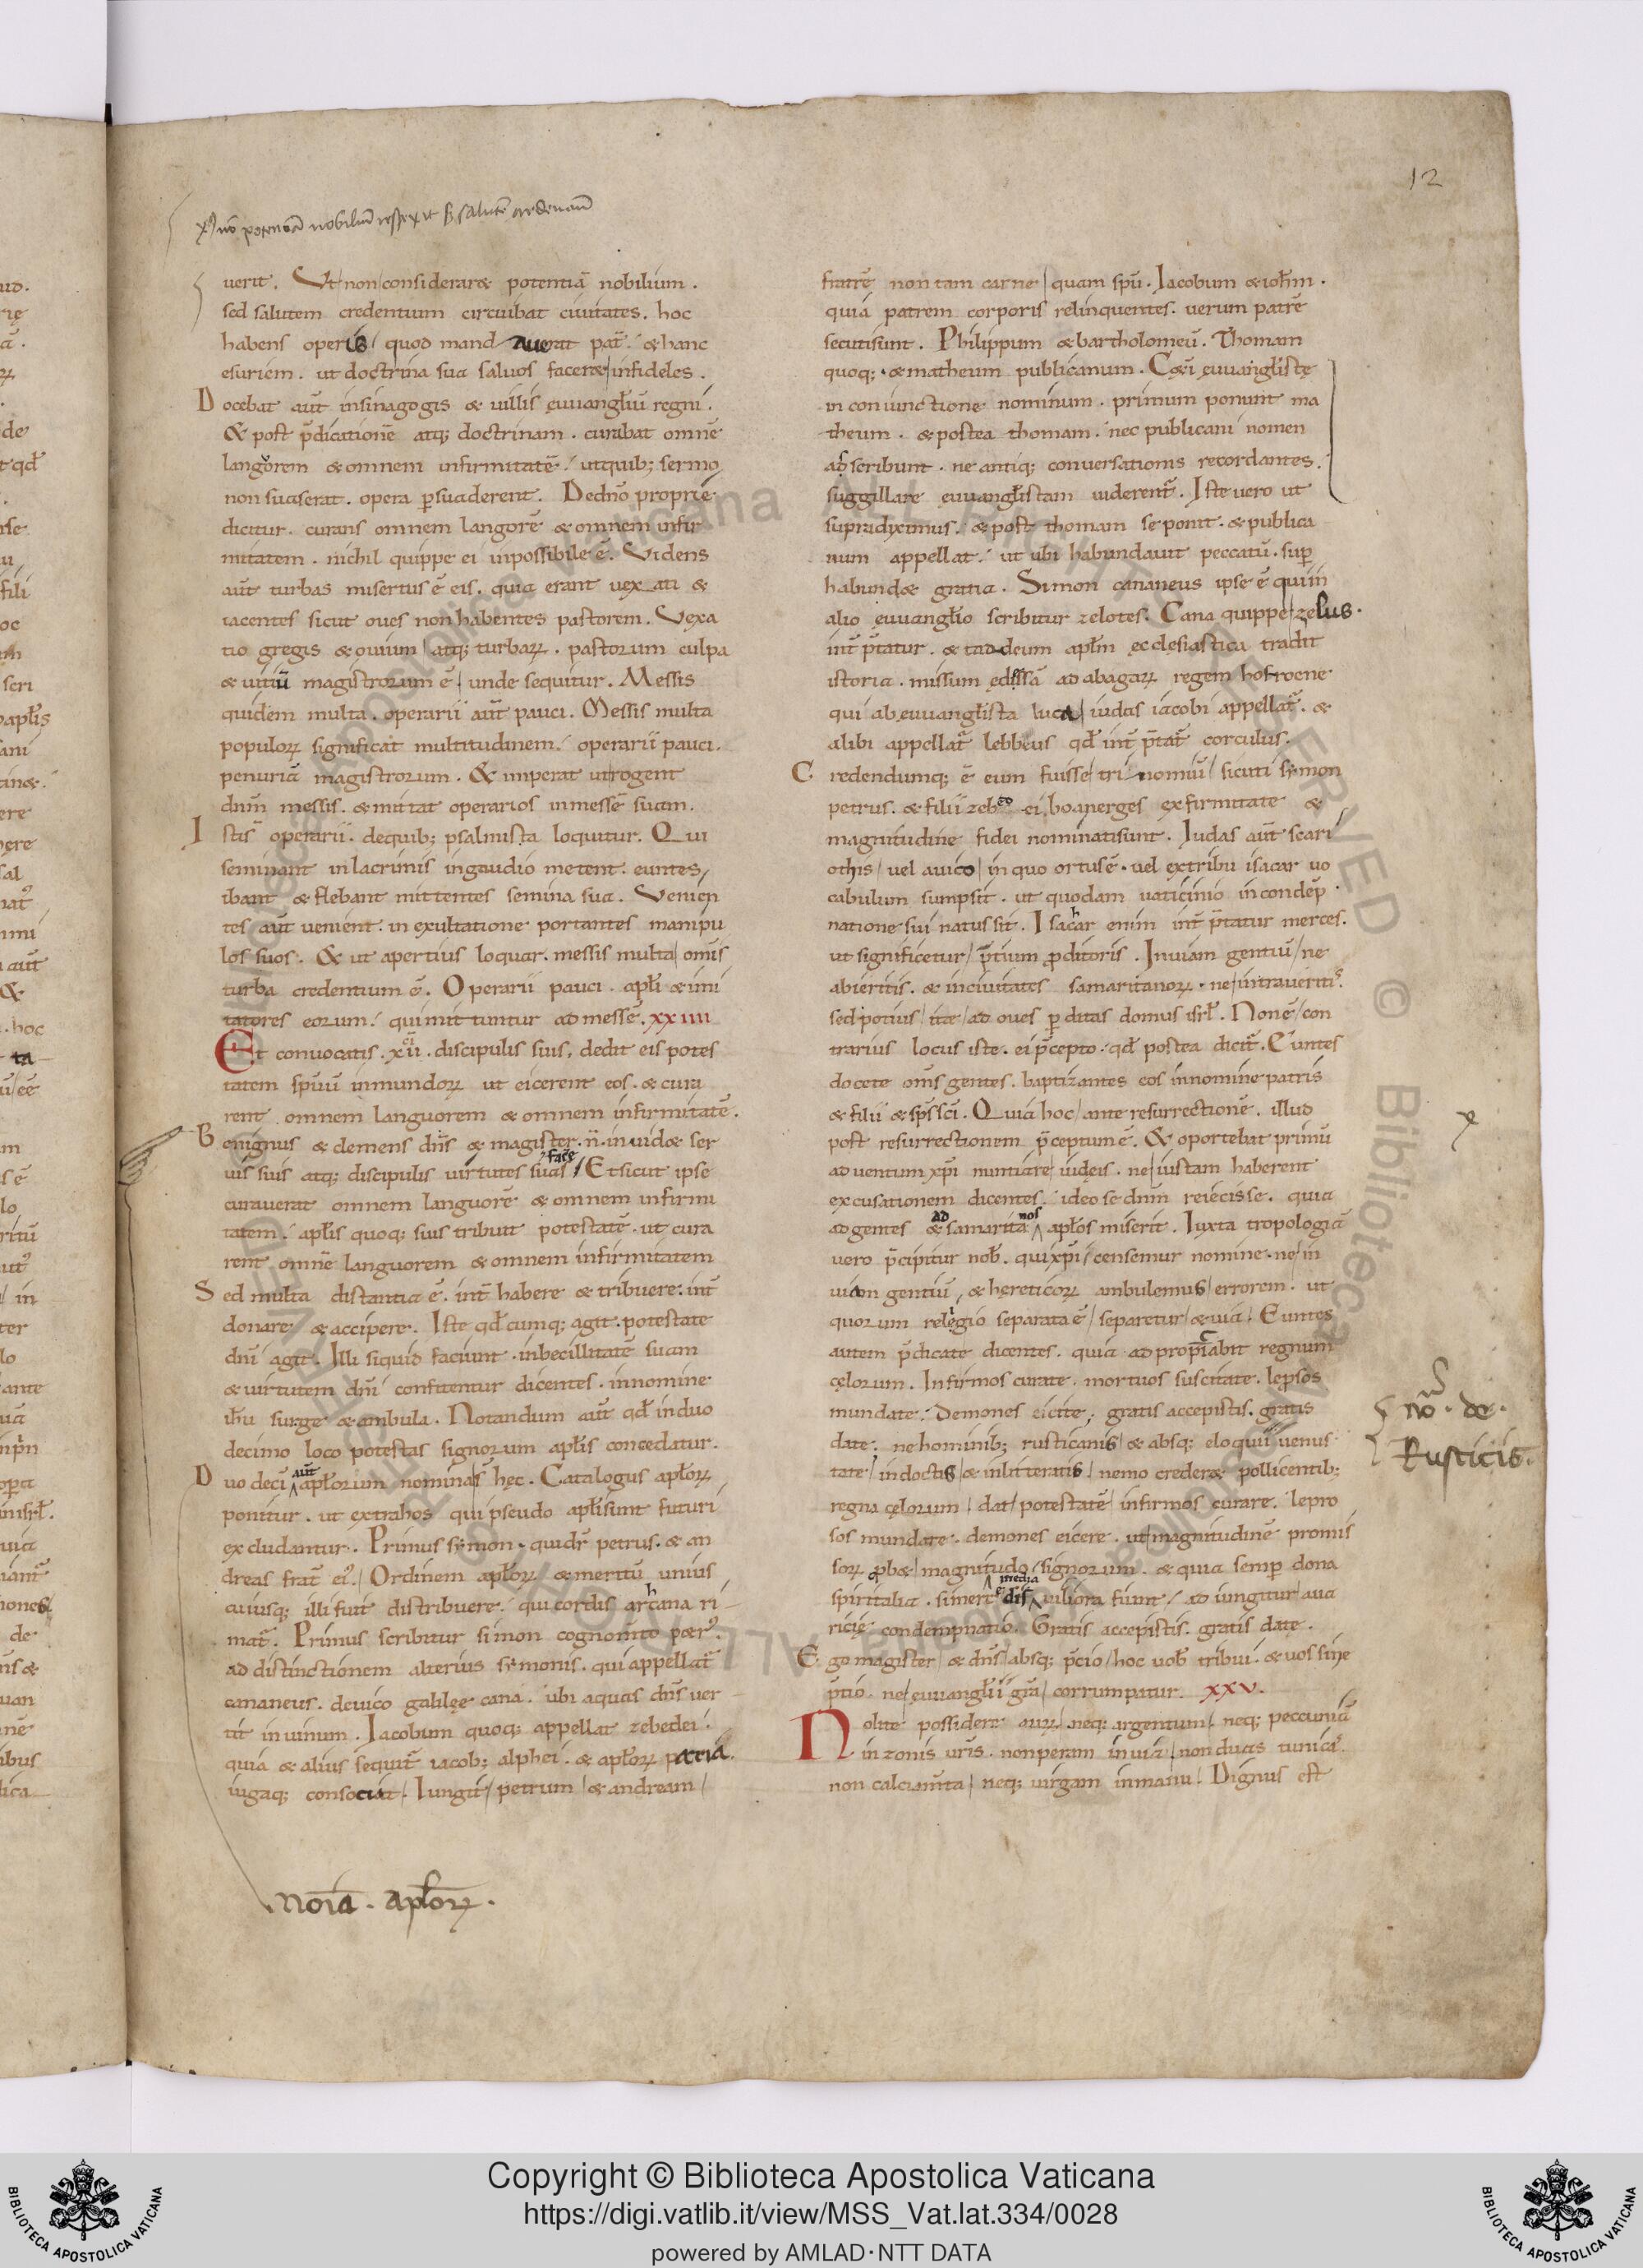 12
xp̄s nō potentiā nobiliū respexit s; salutē credentiū
uerit. Ut non consideraret potentiā nobilium.
sed salutem credentium circuibat ciuitates. hoc
habens operis quod mandauerat pat̄. & hanc
esuriem. ut doctrina sua saluos faceret infideles.
Docebat aut̄ insinagogis & uillis euuangl̄iū regni.
& post p̄dicationē atq; doctrinam. curabat omnē
langorem & omnem infirmitatē. utquib; sermo
non suaserat. opera p̲suaderent. Dedn̄o proprie
dicitur. curans omnem langorē & omnem infir
mitatem. nichil quippe ei inpossibile ē. Videns
aut̄ turbas misertus ē eis. quia erant uexati &
iacentes sicut oues non habentes pastorem. Vexa
tio gregis & ouium atq; turbaꝝ. pastorum culpa
& uitiū magistrorum ē unde sequitur. Messis
quidem multa. operarii aut̄ pauci. Messis multa
populoꝝ significat multitudinem. operarii pauci.
penuriā magistrorum. & imperat ut rogent
dn̄m messis. & mittat operarios inmessē suam.
Isti s̄ operarii. dequib; psalmista loquitur. Qui
seminant inlacrimis ingaudio metent. euntes
ibant & flebant mittentes semina sua. Venien
tes aut̄ uenient. in exultatione portantes manipu
los suos. & ut apertius loquar. messis multa omis
turba credentium ē. Operarii pauci. apl̄i & imi
tatores eorum. quimittuntur ad messē. xxiiii
Et conuocatis. xii. discipulis suis, dedit eis potes
tatem spūū inmundoꝝ ut eicerent eos. & cura
rent omnem languorem & omnem infirmitatē.
Benignus & clemens dn̄s & magister. n̄ inuidet ser
uis suis atq; discipulis uirtutes suas face Etsicut ipse
curauerat omnem languorē & omnem infirmi
tatem. apl̄is quoq; suis tribuit potestatē. ut cura
rent omnē languorem & omnem infirmitatem
Sed multa distantia ē. int̄ habere & tribuere. int̄
donare & accipere. Iste qd̄cumq; agit. potestate
dn̄i agit. Illi siquid faciunt. inbecillitatē suam
& uirtutem dn̄i confitentur dicentes. innomine
ih̄u surge & ambula. Notandum aut̄ qd̄ induo
decimo loco potestas signorum apl̄is concedatur.
Duodeci aut̄ apl̄orum nomina s̄ hęc. Catalogus apl̄oꝝ
ponitur. ut extra hos qui pseudo apl̄i sunt futuri
excludantur. Primus symon. quidr̄ petrus. & an
dreas frat̄ ei᾽. Ordinem apl̄oꝝ & meritū unius
cuiusq; illi fuit distribuere. qui cordis archana ri
mat̄. Primus scribitur simon cognomto petr᾽.
ad distinctionem alterius symonis. qui appellat̄
cananeus. deuico galilęe cana. ubi aquas dn̄s uer
tit in uinum. Iacobum quoq; appellat zebedei.
quia & alius sequit̄ iacob; alphei. & apl̄oꝝ paria
iugaq; consociat. Iungit petrum & andream
fratrē non tam carne quam spū. Iacobum & ioh̄m.
quia patrem corporis relinquentes. uerum patrē
secutisunt. Philippum & bartholomeū. Thomam
quoq; & matheum publicanum. Cęti euuangl̄istę
in coniunctione nominum. primum ponunt ma
theum. & postea thomam. nec publicani nomen
adscribunt. ne antiq; conuersationis recordantes.
suggillare euuangl̄istam uiderent̄. Iste uero ut
supradiximus. & post thomam se ponit. & publica
num appellat. ut ubi habundauit peccatū. sup̲
habundet gratia. Simon cananeus ipse ē qui in
alio euuangl̄io scribitur zelotes. Cana quippe zelus.
int̄p̄tatur. & taddeum apl̄m ecclesiastica tradit
istoria. missum edissā ad abagaꝝ regem hosroene
qui ab euuangl̄ista luca iudas iacobi appellat̄. &
alibi appellat̄ lebbeus qd̄ int̄p̄tat̄ corculus.
Credendumq; ē eum fuisse trinomiū sicuti symon
petrus. & filii zebedei boanerges exfirmitate &
magnitudine fidei nominatisunt. Iudas aut̄ scari
othis uel auico in quo ortusē. uel extribu isacar uo
cabulum sumpsit. ut quodam uaticinio incondēp
natione sui natus sit. Isachar enim int̄p̄tatur merces.
ut significetur p̄tium p̲ditoris. Inuiam gentiū ne
abieritis. & inciuitates samaritanoꝝ. ne intraueriti᾽.
sed potius ite ad oues p̲ditas domus isrl̄. Nonē con
trarius locus iste. ei p̄cepto. qd̄ postea dicit̄. Euntes
docete om̄s gentes. baptizantes eos innomine patris
& filii & sp̄s sc̄i. Quia hoc ante resurrectionē. illud
post resurrectionem p̄ceptumē. & oportebat primū
aduentum xp̄i nuntiare iudeis. ne iustam haberent
excusationem dicentes. ideo se dn̄m reiecisse. quia
adgentes & ad samaritanos apl̄os miserit. Iuxta tropologiā
uero p̄cipitur nob̄. qui xp̄i censemur nomine. ne in
uiam gentiū, & hereticoꝝ ambulemus errorem. ut
quorum religio separata ē separetur & uia. Euntes
autem p̄dicate dicentes. quia adpropīcabit regnum
cęlorum. Infirmos curate. mortuos suscitate. leprsos
mundate. Demones eicite; gratis accepistis. gratis
date. ne hominib; rusticanis & absq; eloquii uenus
tate indoctis & inlitteratis nemo crederet pollicentib;
regna cęlorum. dat potestatē infirmos curare. lepro
sos mundare. demones eicere. ut magnitudinē promis
soꝝ p̲bet magnitudo signorum. & quia semp̲ dona
spiritalia. si mercedis media uiliora fiunt. adiungitur aua
ricię condempnatio. Gratis accepistis. gratis date.
Ego magister & dn̄s absq; p̄cio hoc uob̄ tribui. & uos sine
p̄tio. ne euuangl̄ii gr̄a corrumpatur. xxv.
Nolite possidere auꝝ. neq; argentum. neq; peccuniā
in zonis uris. non peram in uia non duas tunica᾽.
non calciam̄ta neq; uirgam inmanu. Dignus est
nō. de.
Rusticis.
Noīa. apl̄oꝝ.
Copyright © Biblioteca Apostolica Vaticana
https://digi.vatlib.it/view/MSS_Vat.lat.334/0028
powered by AMLAD·NTT DATA
BIBLIOTECA APOSTOLICA VATICANA
BIBLIOTECA APOSTOLICA VATICANA